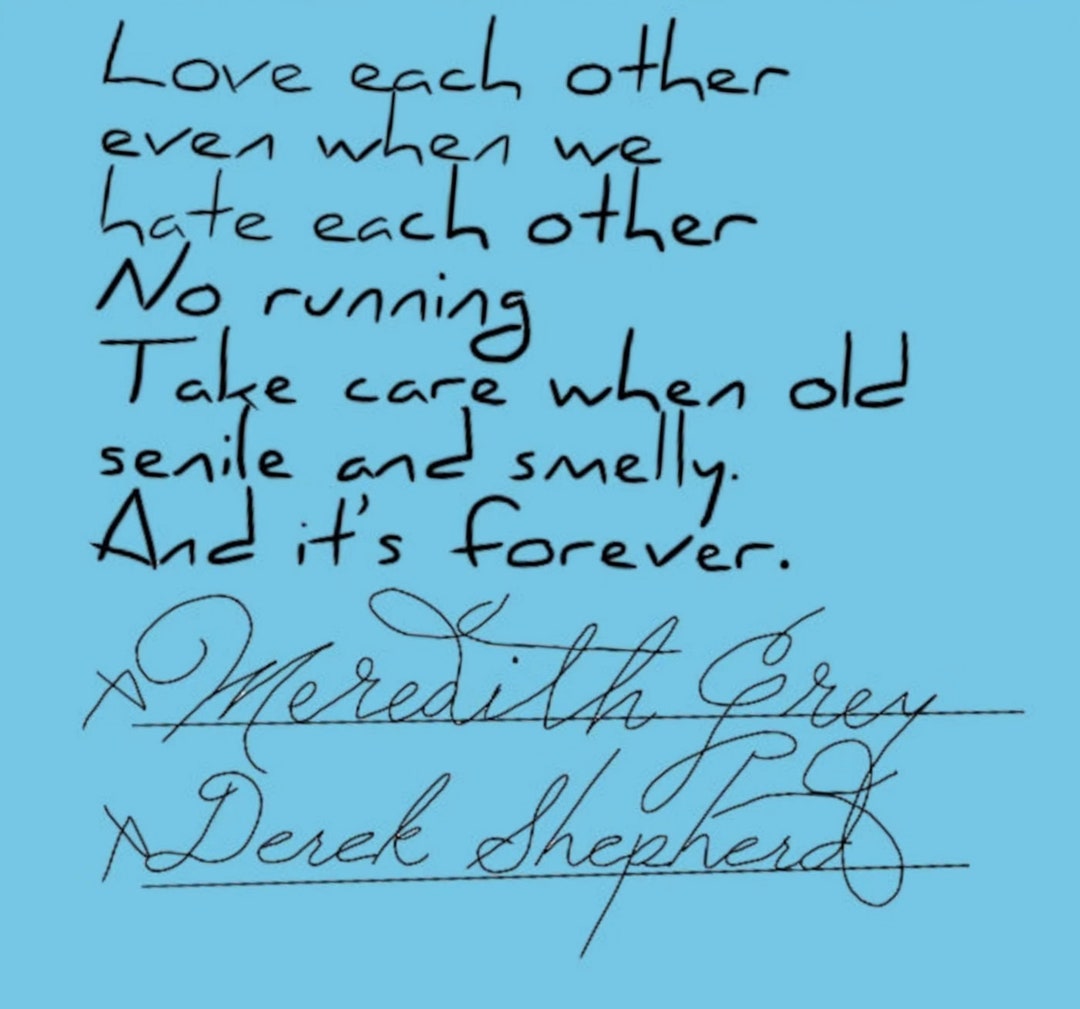 Love each other
even when we
hate each other
No running
Take care when old
senile and smelly.
And it's forever.
X Meredith Grey
X Derek Shepherd